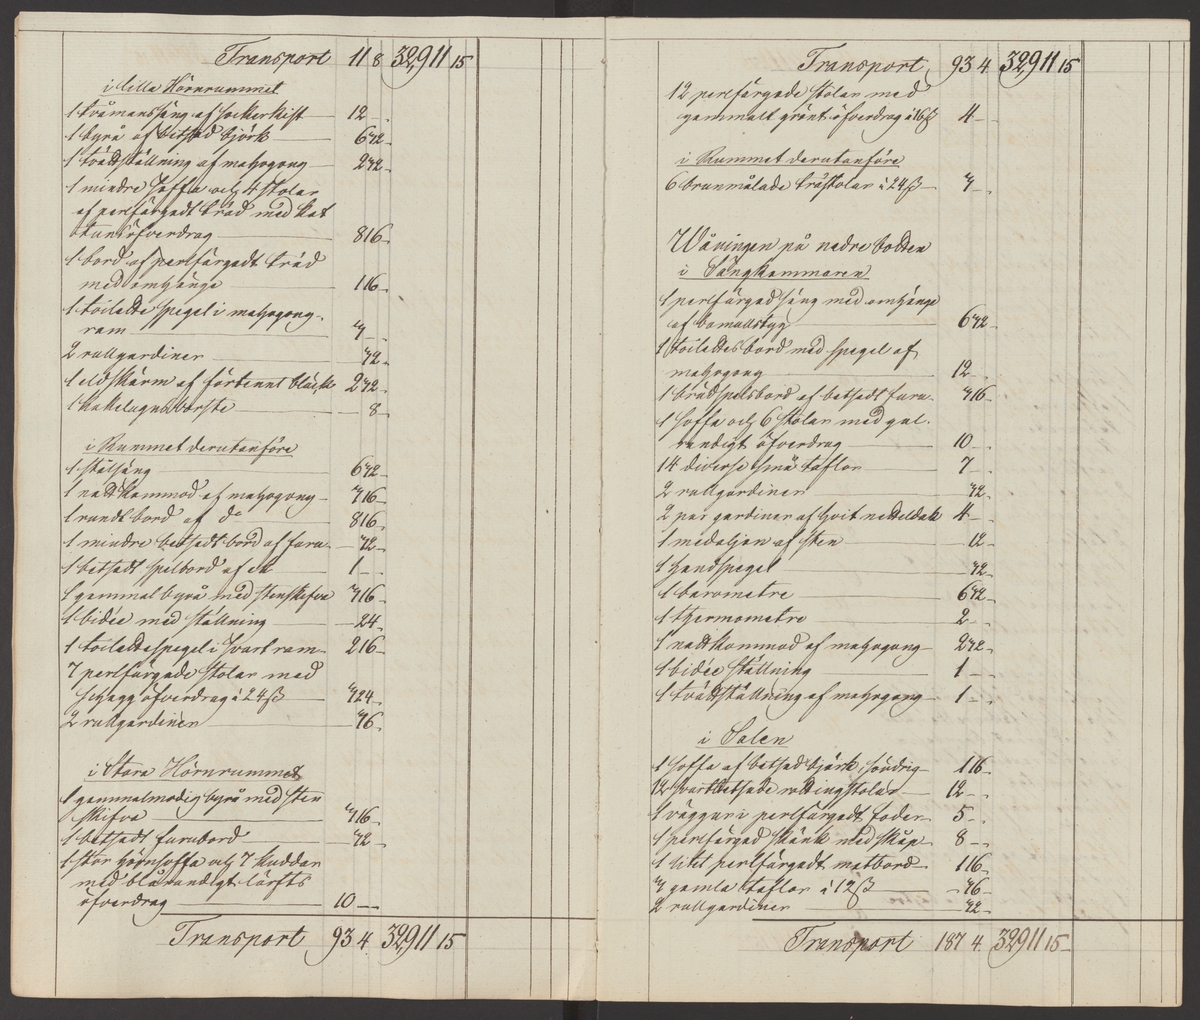 Transport 11 8 32,911 15
i Lilla Hörnrummet
1 tvåmanssäng af sockerkist 12 -
1 byrå af betsad björk 6 32
1 tvättställning af mahogony 2 32
1 mindre soffa och 4 stolar
af perlfärgadt träd med kat
tuns öfverdrag 8 16
1 bord af perlfärgadt träd
med omhänge 1 16
1 toilette spegel i mahogony-
ram
2 rullgardiner 32
1 eldskärm af förtent bläck 2 32
1 kakelugnsborste - 8
i Rummet derutanföre
1 stålsäng 6 32
1 nattkommod af mahogony 3 16
1 rundt bord af do 8 16
1 mindre betsadt bord af furu 32
1 betsadt spelbord af ek 1 -
1 gammal byrå med stenskifva 3 16
1 bidée med ställning - 24
1 toilettespegel i svart ram 2 16
7 perlfärgade stolar med
schagg öfverdrag à 24 ß 3 24
2 rullgardiner 16
i Stora Hörnrummet
1 gammalmodig byrå med sten
skifva 3 16
1 betsadt furubord 32
1 stor hörnsoffa och 7 kuddar
med blårandigt lärfts
öfverdrag 10 -
Transport 93 4 32,911 15
Transport 93 4 32,911 15
12 perlfärgade stolar med
gammalt grönt öfverdrag à 16 ß 4 -
i Rummet derutanföre
6 brunmålade trästolar à 24 ß 3 -
Våningen på nedre botten
i Sängkammaren
1 perlfärgad säng med omhänge
af bomullstyg 6 32
1 toilettesbord med spegel af
mahogony 12 -
1 brädspelsbord af betsadt furu 3 16
1 soffa och 6 stolar med gul-
randigt öfverdrag 10 -
14 diverse små taflor 7 -
2 rullgardiner 32
2 par gardiner af hvit nettelduk 4 -
1 medaljon af sten - 12
1 handspegel 32
1 barometre 6 32
1 thermometre 2 -
1 nattkommod af mahogony 2 32
1 bidée ställning 1 -
1 tvättställning af mahogony 1 -
i Salen
1 soffa af betsad björk, söndrig 1 16
12 svartbetsade rottingstolar 12 -
1 väggur i perlfärgadt foder 5 -
1 perlfärgad skänk med skåp 8 -
1 litet perlfärgadt matbord 1 16
3 gamla taflor à 12 ß - 36
2 rullgardiner 32
Transport 187 4 32911 15